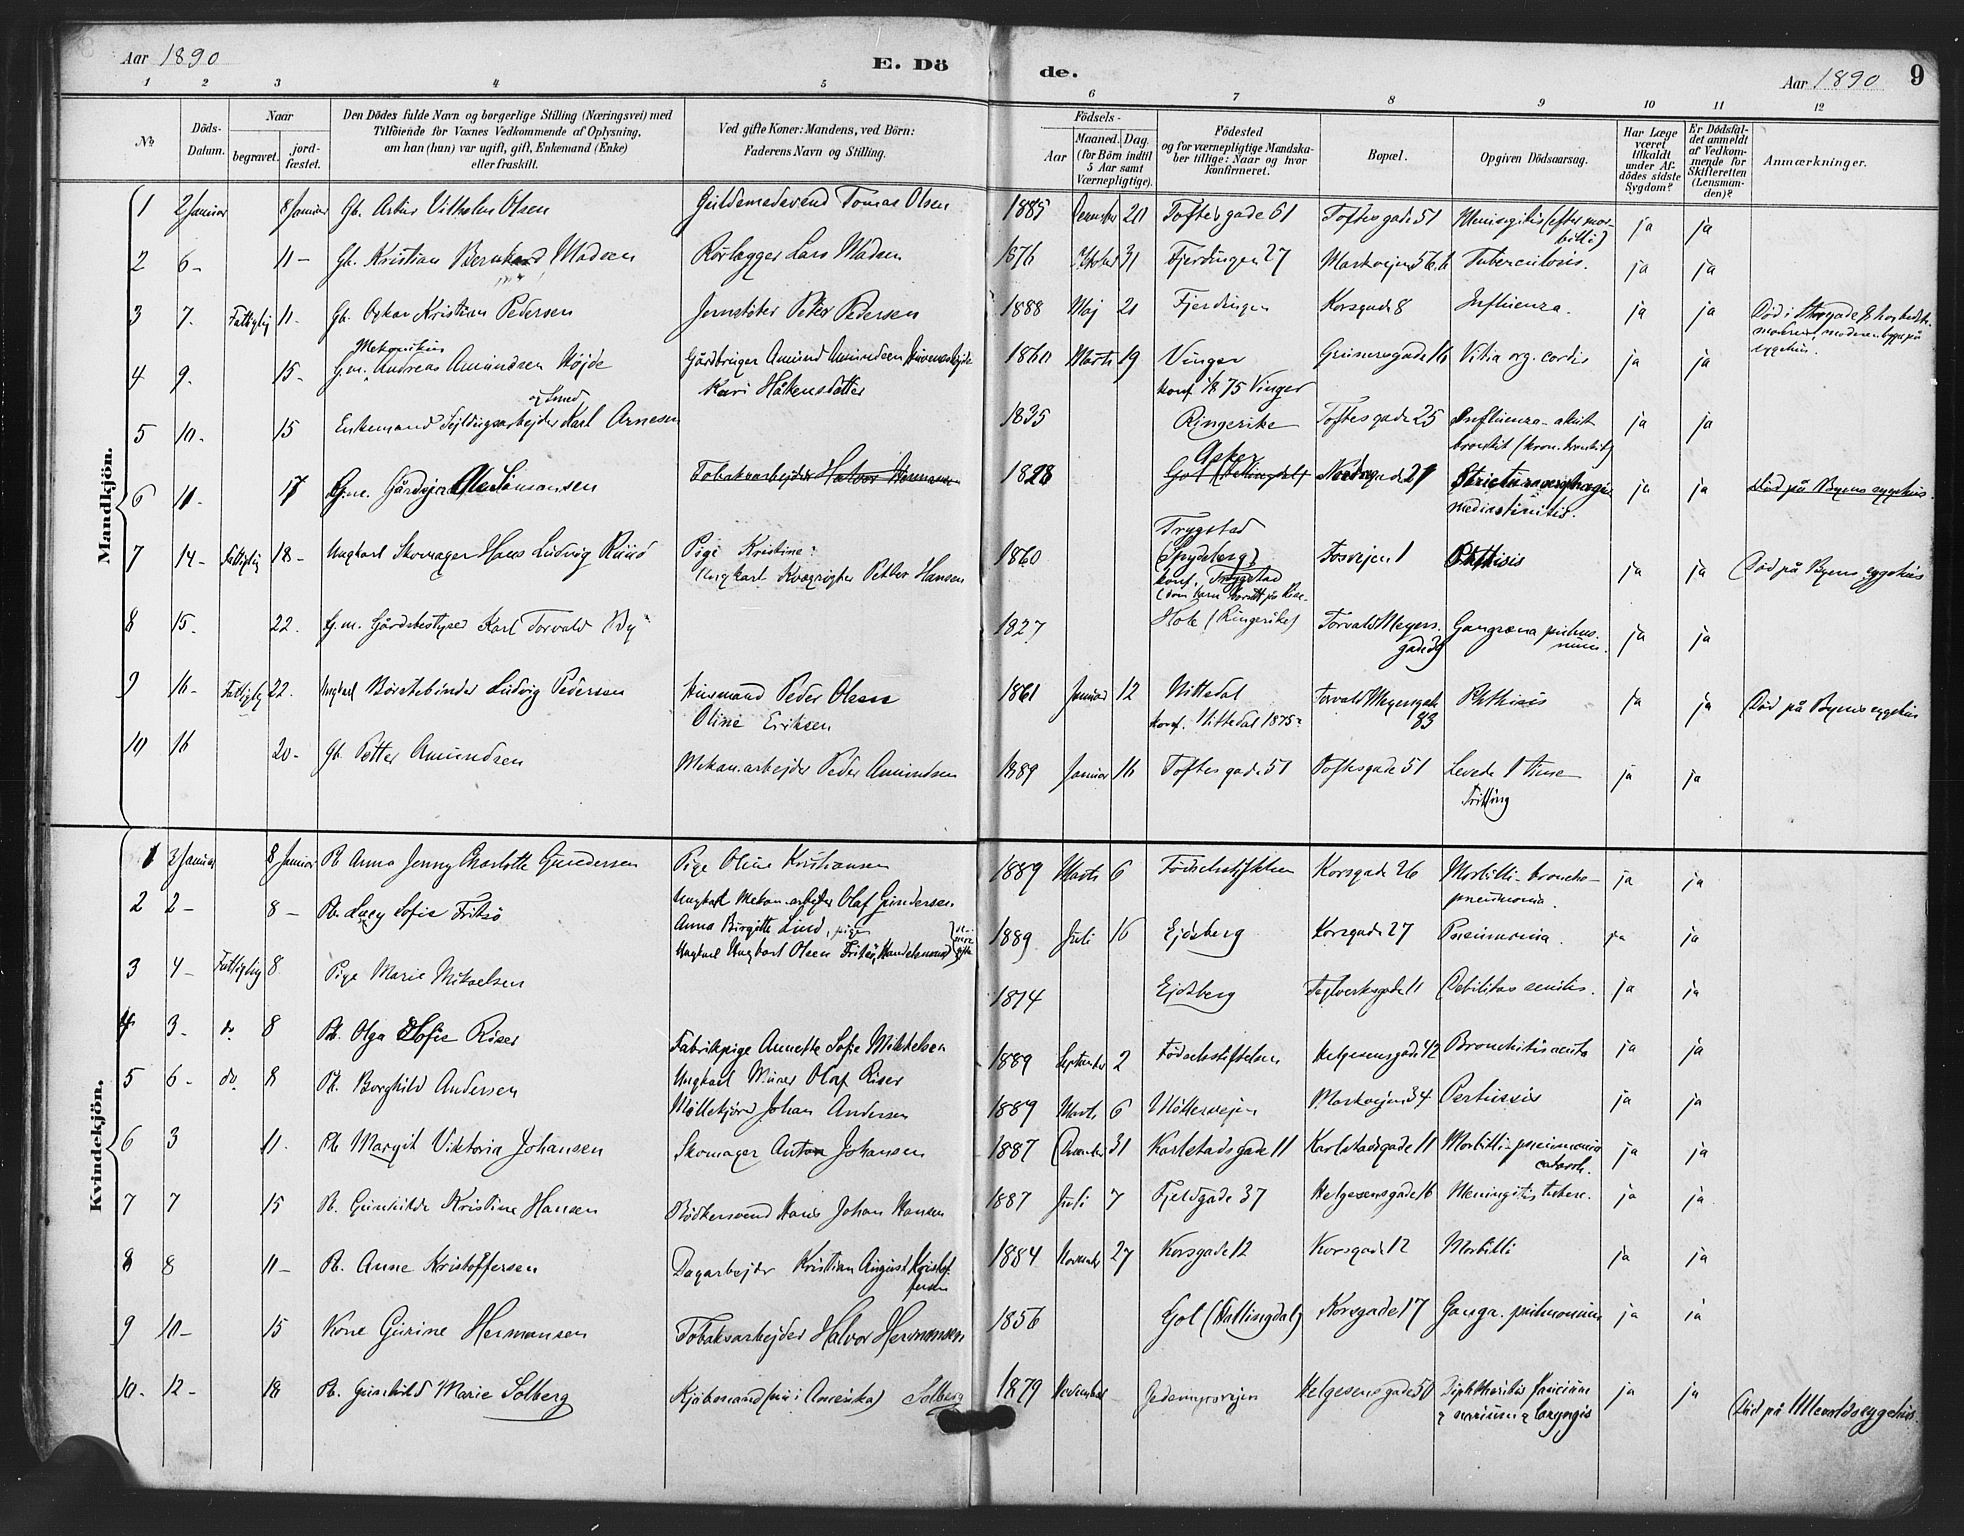 Aar 1890
E. Dö
de.
Aar 1890
9
1 2 3 4 5 6 7 8 9 10 11 12
No
Döds-Datum.
Naar
begravet.
jordfæstet.
Den Dödes fulde Navn og borgerlige Stilling (Næringsvei) med
Tilföiende for Voxnes Vedkommende af Oplysning,
om han (hun) var ugift, gift, Enkemand (Enke)
eller fraskilt.
Ved gifte Koner: Mandens, ved Börn:
Faderens Navn og Stilling.
Födsels-
Aar
Maaned.
Dag.
(for Börn indtil
5 Aar samt
Værnepligtige).
Födested
og for værnepligtige Mandska-
ber tillige: Naar og hvor
konfirmeret.
Bopæl.
Opgiven Dödsaarsag.
Har Læge
været
tilkaldt
under Af-
dödes sidste
Sygdom?
Er Dödsfal-
det anmeldt
af Vedkom-
mende for
Skifteretten
(Lensman-
den)?
Anmærkninger.
Mandkjön.
1 2 Januar 8 Januar Gb. Artur Vilhelm Olsen Guldsmedsvend Tomas Olsen 1885 20 Toftesgade 61 Toftesgade 51 Meningitis (efter mor-
billi) ja ja
2 6- 11- Gb. Kristian Bernhard Madsen Rörlægger Lars Madsen 1876 31 Fjerdingen 27 Markvejen 56 b Tuberculosis. ja ja
3 7. Fattiglig 11- Gb. Oskar Kristian Pedersen Jernstöber Peter Pedersen 1888 Maj 21 Fjerdingen Korsgade 8 Influenza. ja ja Död i
sygehus.
4 9. 15- G.m. Andreas Amundsen Höjde Gårdbruger Amund Amundsen
Kari Håkensdatter 1860 Marts 19 Vinger
konf. 75 Vinger Grünersgade 16 Vitia org. cordis ja ja
5 10- 15 Enkemand og Smed Karl Arnesen 1835 Ringerike Toftesgade 25 Influenza - akut
bronkit (kron. bronkit) ja ja
6 11- 17 G.m. Ole Tobaksarbejder Halvor Hermansen 1828 Asker
Gol (Hallingdal) 21
mediastinitis. ja ja Död på Byens sygehus.
7 14- Fattiglig 18- Ungkarl Skomager Hans Ludvig Ruud Pige Kristine
Ungkarl Petter Hansen 1860 Trygstad
(Spydeberg)
konf. Trygstad Fosvejen 1 Phthisis ja ja Död på Byens sygehus
8 15- 22. G.m. Gårdsbestyrer Karl Torvald By 1827 Hole (Ringerike) Torvald Meyers-
gade Gangræna pulmo-
num. ja ja
9 16- Fattiglig 22. Ungkarl Börstebinder Ludvig Pedersen Husmand Peder Olsen
Oline Eriksen 1861 Januar 12 Nittedal
konf. Nittedal 1875 Torvald Meyersgade
83 Phthisis ja ja Död på Byens sygehus
10 16 20- Gb. Petter Amundsen Mekan.arbejder Peder Amundsen 1889 Januar 16 Toftesgade 51 Toftesgade 51 Levede 1 time
Tvilling ja ja
Kvindekjön.
1 2 Januar 8 Januar Pb. Anna Jenny Charlotte Gundersen Pige Oline Kristiansen
Ungkarl Mekan.arbejder Olaf Gundersen 1889 Marts 6 Födselsstiftelsen Korsgade 26 Morbilli - broncho-
pneumonia. ja ja
2 2- 8- Pb. Lucy Sofie Fritsö Anna Birgitte Lund, pige
Ungkarl Ungkarl Olsen Fritsö, Handelsmand 1889 Juli 16 Ejdsberg Korsgade 27 Pneumonia. ja ja
3 4- Fattiglig 8 Pige Marie Mikaelsen 1814 Ejdsberg Teglverksgade 11 Debilitas senilis. ja ja
4 3- do 8 Pb. Olga Sofie Riser Fabrikpige Annette Sofie Mikkelsen
Ungkarl Murer Olaf Riser 1889 September 2 Födselsstiftelsen Helgesensgade 42 Bronchitis acuta ja ja
5 6- do. 8 Pb. Borghild Andersen Möllekjörer Johan Andersen 1889 Marts 6 Möllerveien Markvejen 34 Pertussis ja ja
6 3 11. Pb. Margit Viktoria Johansen Skomager Anton Johansen 1887 December 31 Karlstadsgade 11 Karlstadsgade 11 Morbilli - pneumonia
catarrh. ja ja
7 7 15 Pb. Gunhilde Kristine Hansen Bödkersvend Hans Johan Hansen 1887 Juli 7 Fjeldgade 37 Helgesensgade 16 Meningitis tuberc. ja ja
8 8 11- Pb. Anne Kristoffersen Dagarbejder Kristian August Kristof-
fersen 1884 November 27 Korsgade 12 Korsgade 12 Morbilli ja ja
9 10- 15 Kone Gurine Hermansen Tobaksarbejder Halvor Hermansen 1856 Gol (Hallingdal) Korsgade 17 Gangr. pulmonum ja ja
10- 12- 18 Pb. Gunhild Marie Solberg Kjöbmand (nu i Amerika) Solberg 1879 November Helgesensgade 50 Diphtheritis faucium
& narium & laryngis ja ja Död på Ullevold sygehus.